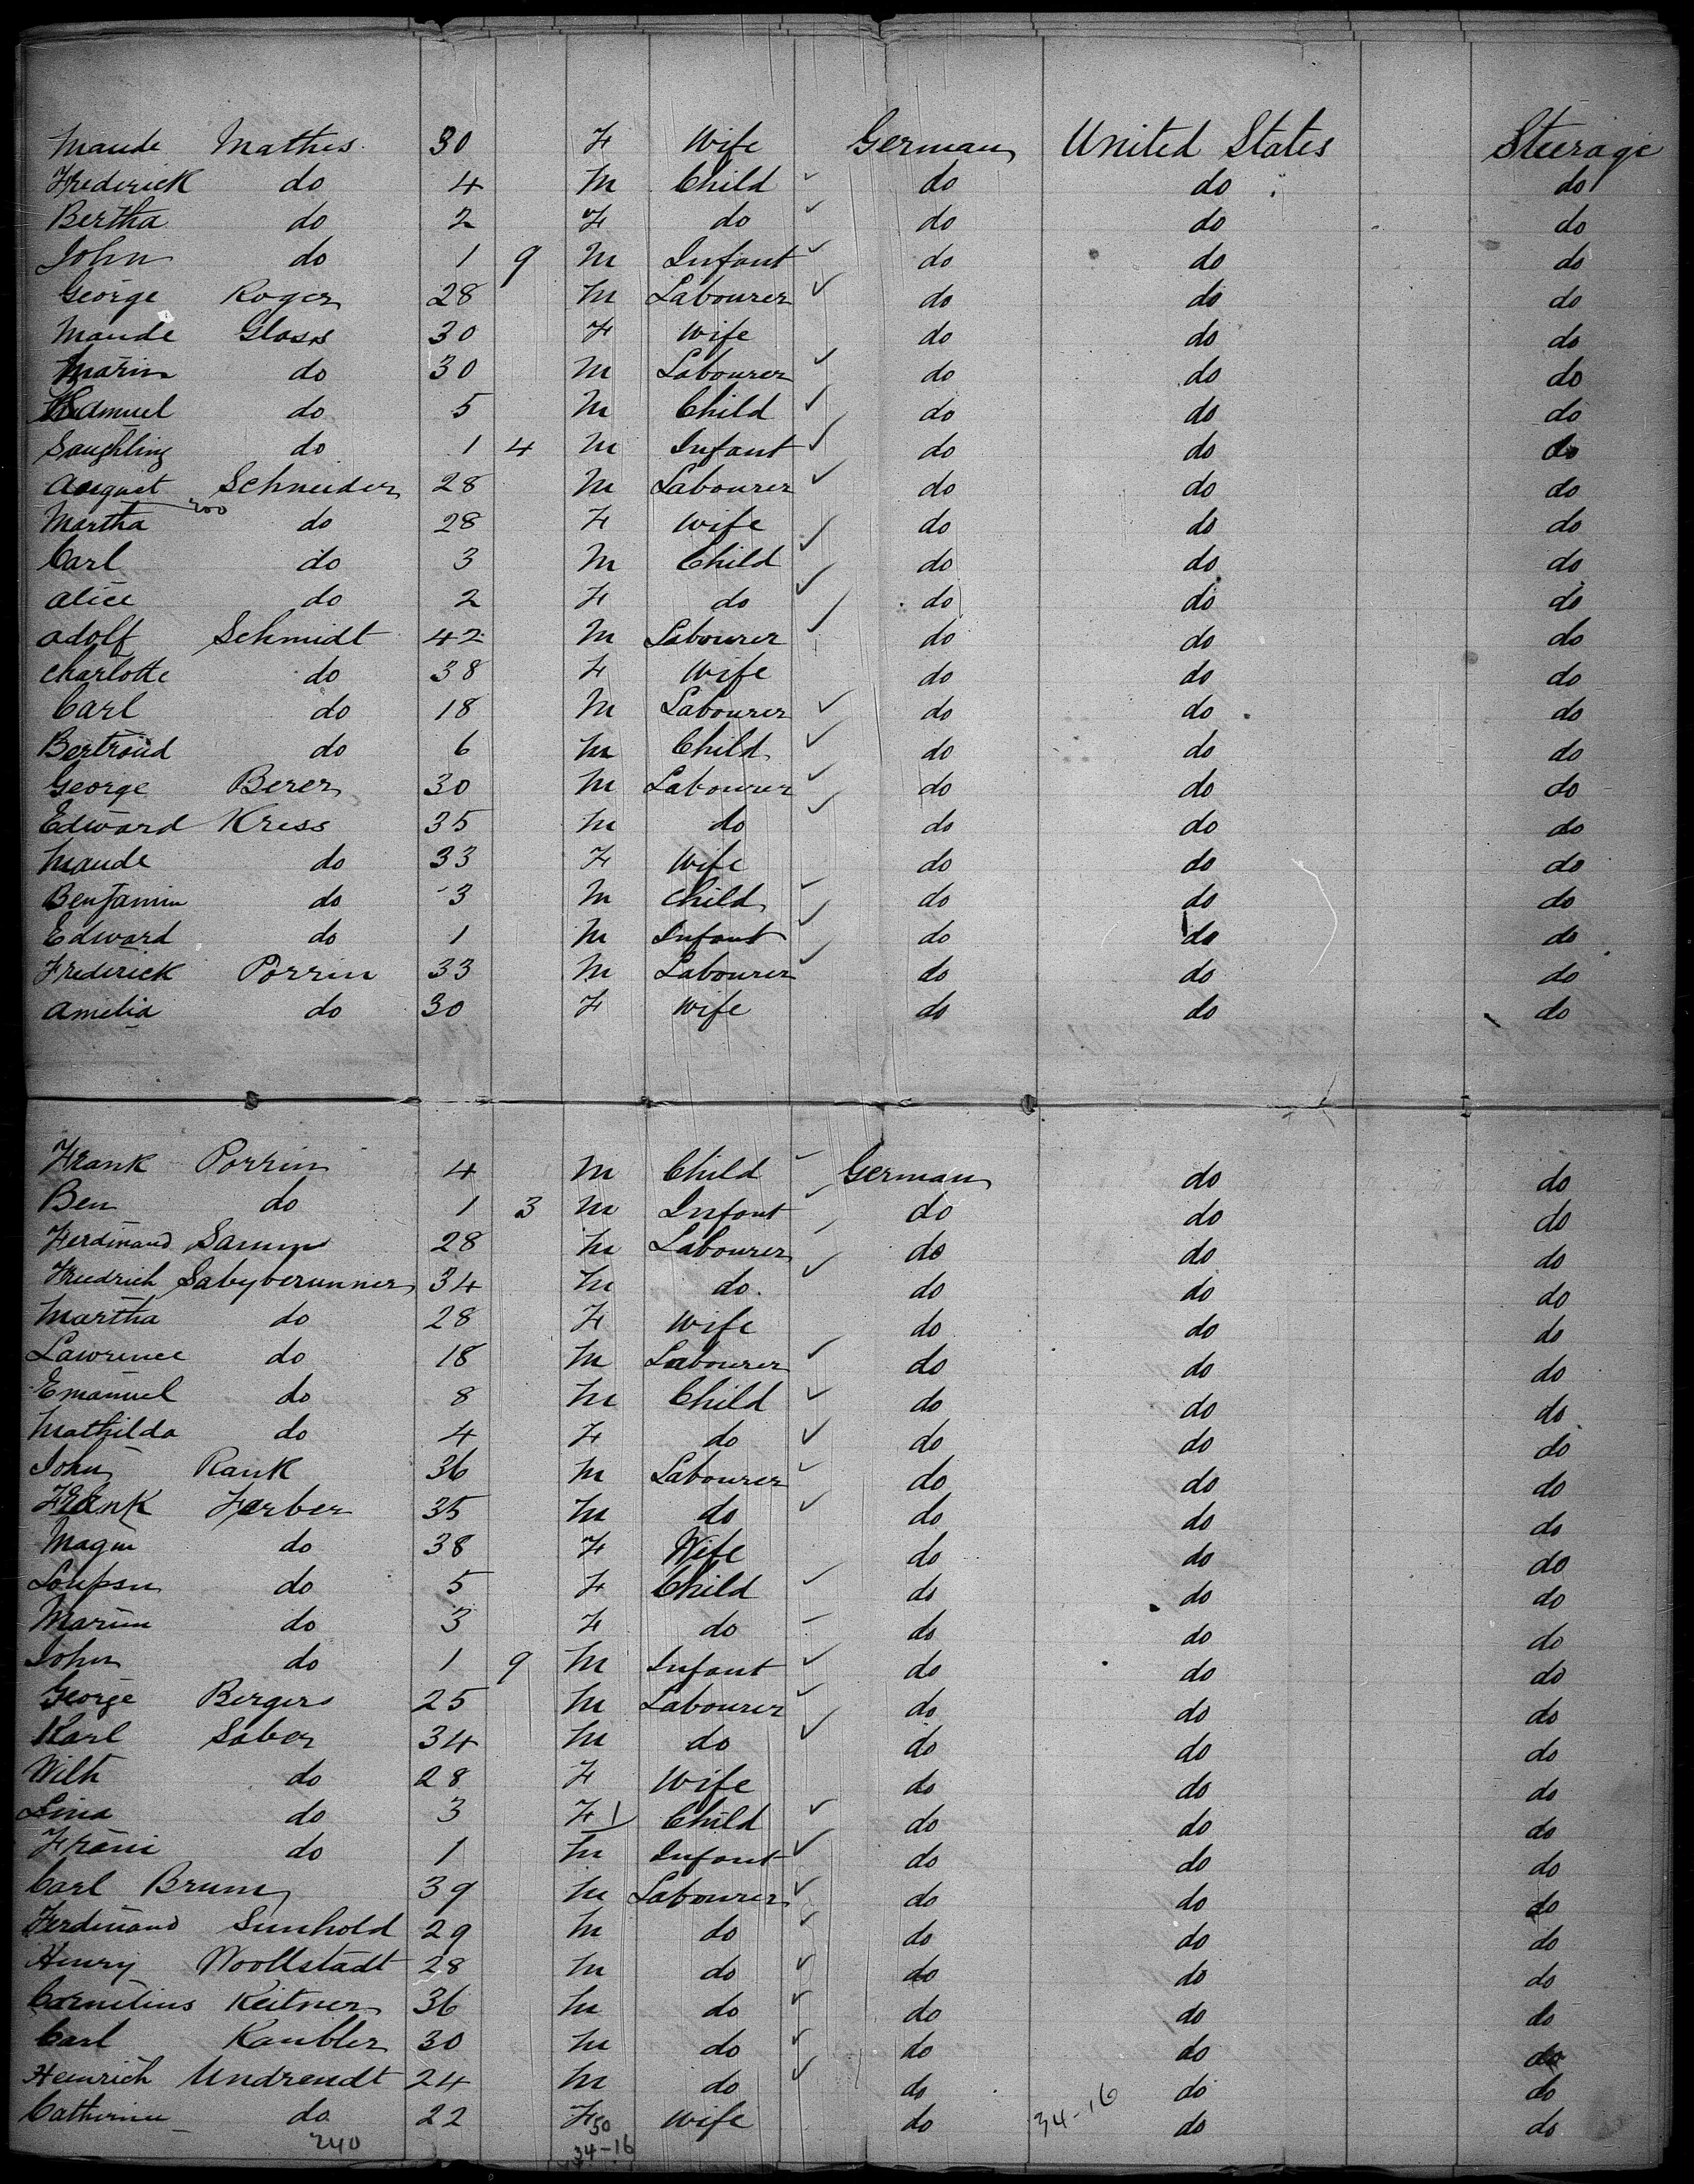 Maude Mathes 30 F Wife German United States Steerage
Frederick do 4 M Child do do do
Bertha do 2 F do do do do
John do 1 9 M Infant do do do
George Roger 28 M Labourer do do do
Maude Glass 30 F Wife do do do
Marin do 30 M Labourer do do do
Samuel do 5 M Child do do do
Saughling do 1 4 M Infant do do do
August Schneider 28 M Labourer do do do
200
Martha do 28 F Wife do do do
Carl do 3 M Child do do do
Alice do 2 F do do do do
Adolf Schmidt 42 M Labourer do do do
Charlotte do 38 F Wife do do do
Carl do 18 M Labourer do do do
Bertroud do 6 M Child do do do
George Berer 30 M Labourer do do do
Edward Kress 35 M do do do do
Maude do 33 F Wife do do do
Benjamin do 3 M Child do do do
Edward do 1 M Infant do do do
Frederick Porrin 33 M Labourer do do do
Amelia do 30 F Wife do do do
Frank Porrin 4 M Child German do do
Ben do 1 3 M Infant do do do
Ferdinand 28 M Labourer do do do
Friedrich 34 M do do do do
Martha do 28 F Wife do do do
Lawrence do 18 M Labourer do do do
Emanuel do 8 M Child do do do
Mathilda do 4 F do do do do
John Rank 36 M Labourer do do do
Frank Ferber 35 M do do do do
do 38 F Wife do do do
do 5 F Child do do do
do 3 F do do do do
John do 1 9 M Infant do do do
George Bergers 25 M Labourer do do do
Karl Sober 34 M do do do do
Wilh do 28 F Wife do do do
Lina do 3 F 1 Child do do do
Frani do 1 M Infant do do do
Carl Brum 39 M Labourer do do do
Ferdinand Sunhold 29 M do do do do
Henry Woollstadt 28 M do do do do
Cornelius Keitner 36 M do do do do
Carl Kaubler 30 M do do do do
Heinrich Undrendt 24 M do do do do
Catherine do 22 F Wife do 34-16 do do
240 50
34-16